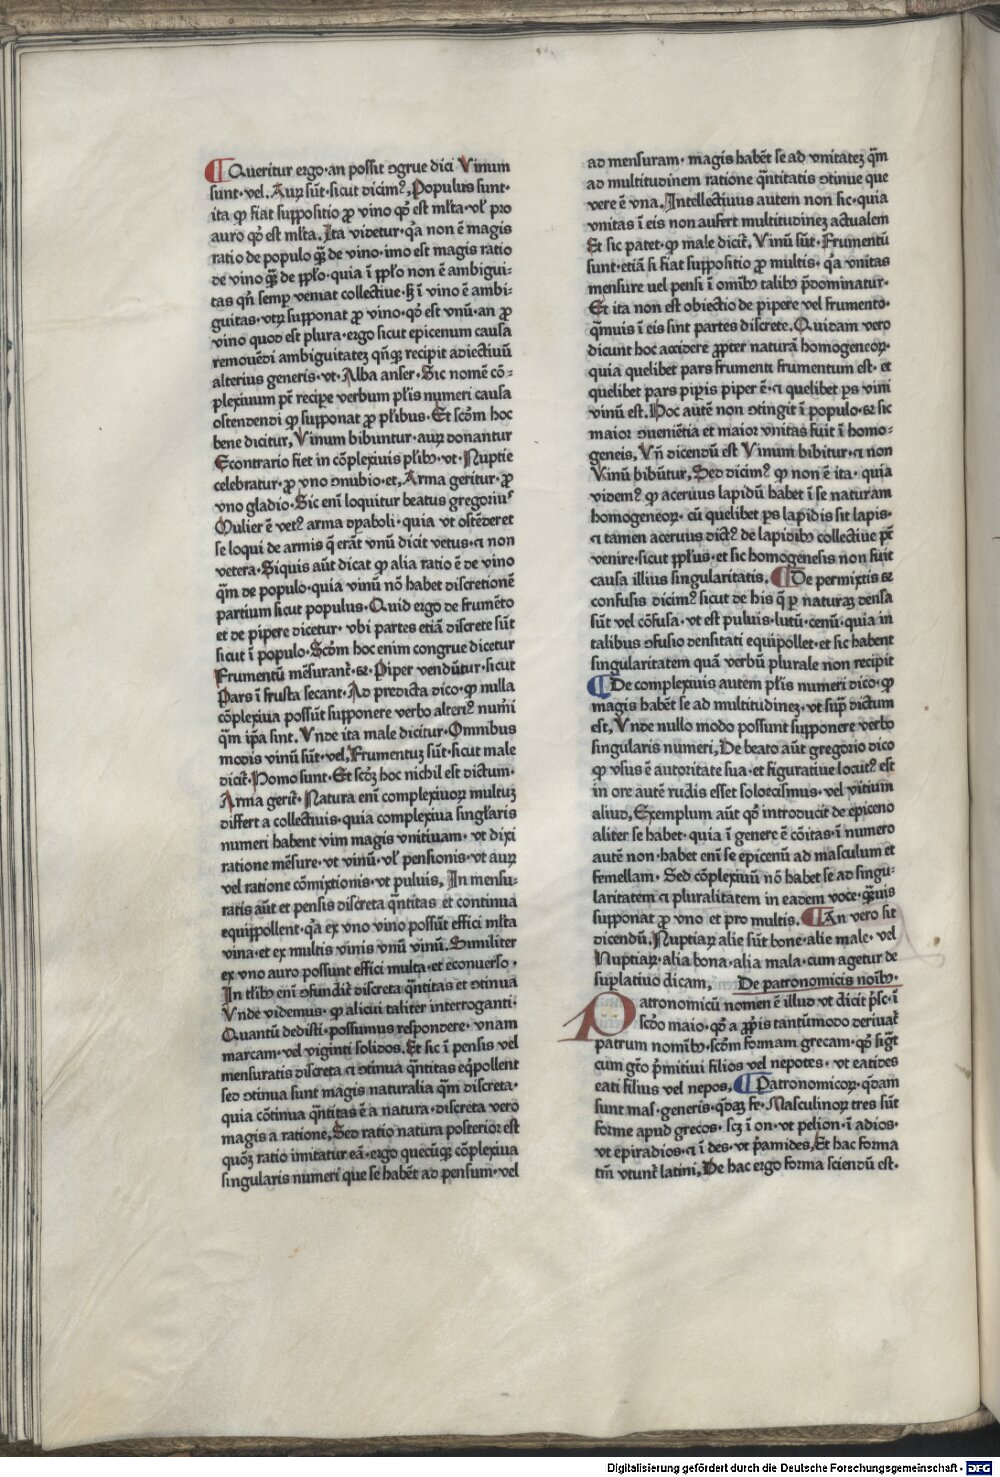 Queritur ergo·an possit ↄgrue dici Vinum
sunt·vel·Auꝝ sūt·sicut dicimꝰ,Populus sunt·
ita ꝙ fiat suppositio ꝓ vino qđ est mꝉta·vꝉ pro
auro qđ est mꝉta.Ita videtur·q̄a non ē magis
ratio de populo q̄ꝫ de vino·imo est magis ratio
de vino q̄ꝫ de ppꝉo·quia ī ppꝉo non ē ambigui-
tas qn̄ semꝑ veniat collectiue·ꝫ ī vino ē ambi-
guitas·vtꝝ supponat ꝓ vino·qđ est vnū·an ꝓ
vino quod est plura·ergo sicut epicenum causa
remouēdi ambiguitatez qn̄qꝫ recipit adiectiuū
alterius generis·vt·Alba anser·Sic nomē cō-
plexiuum pt̄ recipe verbum pꝉis numeri causa
ostendendi ꝙ supponat ꝓ pꝉibus·Et scđm hoc
bene dicitur,Vinum bibuntur·auꝝ donantur
Econtrario fiet in cōplexiuis pꝉibꝫ·vt·Nuptie
celebratur·ꝓ vno ↄnubio·et,Arma geritur·ꝓ
vno gladio·Sic enī loquitur beatus gregoriuˢ
Mulier ē vetꝰ arma dyaboli·quia vt ostēderet
se loqui de armis q̄ erāt vnū dicit vetus·⁊ non
vetera·Siquis aūt dicat ꝙ alia ratio ē de vino
q̄m de populo·quia vinū nō habet discretionē
partium sicut populus·Quid ergo de frumēto
et de pipere dicetur·vbi partes etiā discrete sūt
sicut ī populo·Scđm hoc enim congrue dicetur
Frumentū mēsurant̄·ꝫ·Piper vendūtur·sicut
Pars ī frusta secant·Ad predicta dico·ꝙ nulla
cōplexiua possūt supponere verbo alteriꝰ num̄i
q̄m ip̄a sint·Vnde ita male dicitur·Omnibus
modis vinū sūt·vel,Frumentuz sūt·sicut male
dicit̄·Homo sunt·Et scđꝫ hoc nichil est dictum·
Arma gerit̄·Natura enī complexiuoꝝ multuz
differt a collectiuis·quia complexiua singꝉaris
numeri habent vim magis vnitiuam·vt dixi
ratione mēsure·vt vinū·vꝉ pensionis·vt auꝝ
vel ratione cōmixtionis·vt puluis, In mensu-
ratis aūt et pensis discreta q̄ntitas et continua
equippollent·q̄a ex vno vino possūt effici mꝉta
vina·et ex multis vinis vnū vinū.Similiter
ex vno auro possunt effici multa·et econuerso·
In tꝉibꝫ enī ↄfundit̄ discreta q̄ntitas et ↄtinua
Vnde videmus·ꝙ alicui taliter interroganti·
Quantū dedisti·possumus respondere·vnam
marcam·vel viginti solidos.Et sic ī pensis vel
mensuratis discreta ⁊ ↄtinua q̄ntitas eq̄pollent
sed ↄtinua sunt magis naturalia q̄m discreta·
quia cōtinua q̄ntitas ē a natura·discreta vero
magis a ratione,Sed ratio natura posterior est
quōꝫ ratio imitatur eā·ergo quecūqꝫ cōplexiua
singularis numeri que se habēt ad pensum·vel
ad mensuram·magis habēt se ad vnitatez q̄m
ad multitudinem ratione q̄ntitatis ↄtinue que
vere ē vna.Intellectiuus autem non sic·quia
vnitas ī eis non aufert multitudinez actualem
Et sic patet·ꝙ male dicit̄.Vinū sūt·Frumentū
sunt·etiā si fiat suppositio ꝓ multis·q̄a vnitas
mensure uel pensi ī omībꝫ talibꝫ p̄dominatur·
Et ita non est obiectio de pipere vel frumento·
q̄muis ī eis sint partes discrete.Quidam vero
dicunt hoc accidere ꝓpter naturā homogeneoꝝ·
quia quelibet pars frumenti frumentum est·et
quelibet pars pipis piper ē·⁊ quelibet ps vini
vinū est,Hoc autē non ↄtingit ī populo·ꝫ sic
maior ↄueniētia et maior vnitas fuit ī homo-
geneis,Vn̄ dicendū est Vinum bibitur·⁊ non
Vinū bibūtur,Sed dicimꝰ ꝙ non ē ita·quia
videmꝰ ꝙ aceruus lapidū habet ī se naturam
homogeneoꝝ·cū quelibet ps lapidis sit lapis·
⁊ tamen aceruus dictꝰ de lapidibꝫ collectiue pt̄
venire·sicut ppꝉus·et sic homogenesis non fuit
causa illius singularitatis, De permixtis ꝫ
confusis dicimꝰ sicut de his q̄ ꝑ naturaꝫ densa
sūt vel cōfusa·vt est puluis·lutū·cenū·quia in
talibus ↄfusio densitati equipollet·et sic habent
singularitatem quā verbū plurale non recipit
De complexiuis autem pꝉis numeri dico·ꝙ
magis habēt se ad multitudinez·vt sup̄ dictum
est,Vnde nullo modo possunt supponere verbo
singularis numeri,De beato aūt gregorio dico
ꝙ vsus ē autoritate sua·et figuratiue locutꝰ est
in ore autē rudis esset soloecismus·vel vitium
aliud,Exemplum aūt qđ introducit de epiceno
aliter se habet·quia ī genere ē cōitas·ī numero
autē non·habet enī se epicenū ad masculum et
femellam·Sed cōplexiuū nō habet se ad singu-
laritatem ⁊ pluralitatem in eadem voce·q̄ꝫuis
supponat ꝓ vno et pro multis. An vero sit
dicendū.Nuptiaꝝ alie sūt bone·alie male·vel
Nuptiaꝝ·alia bona·alia mala·cum agetur de
suplatiuo dicam, De patronomicis noībꝫ·
Patronomicū nomen ē illud vt dicit p̄sc·ī
scđo maio·qđ a ꝓpiis tantūmodo deriuat̄
patrum nomībꝫ·scđm formam grecam·qđ sigt̄
cum gto p̄mitiui filios vel nepotes·vt eatides
eati filius vel nepos, Patronomicoꝝ·q̄dam
sunt mas·generis·q̄daꝫ fe·Masculinoꝝ tres sūt
forme apud grecos·scꝫ ī on·vt pelion·ī adios·
vt epiradios·⁊ ī des·vt p̄amides,Et hac forma
tm̄ vtunt̄ latini,De hac ergo forma sciendū est·
Digitalisierung gefördert durch die Deutsche Forschungsgemeinschaft - DFG